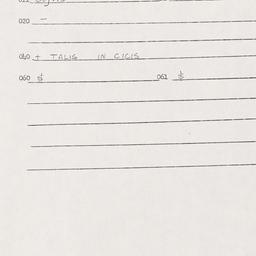 020 –
040 + TALIS IN CICIS
060 $ 061 $